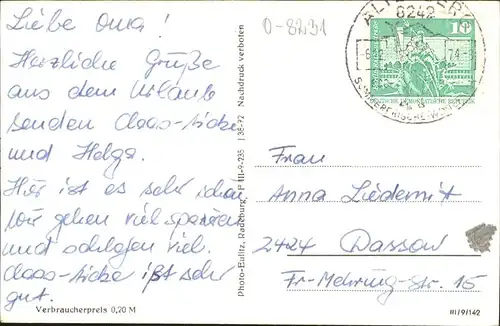 Liebe Oma!
Herzliche Grüße
aus dem Urlaube
senden Claas-Sicke
und Helga.
Hier ist es sehr schön
wir gehen viel spazieren
und schlafen viel.
Claas-Sicke ißt sehr
gut.
Verbraucherpreis 0,20 M
Photo-Eulitz, Radeburg · P III-9-235 J 38-72 Nachdruck verboten
0-8231
8242
10
DEUTSCHE DEMOKRATISCHE REPUBLIK
Frau
Anna Liedemit
2424 Dassow
Fr-Mehring-Str. 15
III/9/142